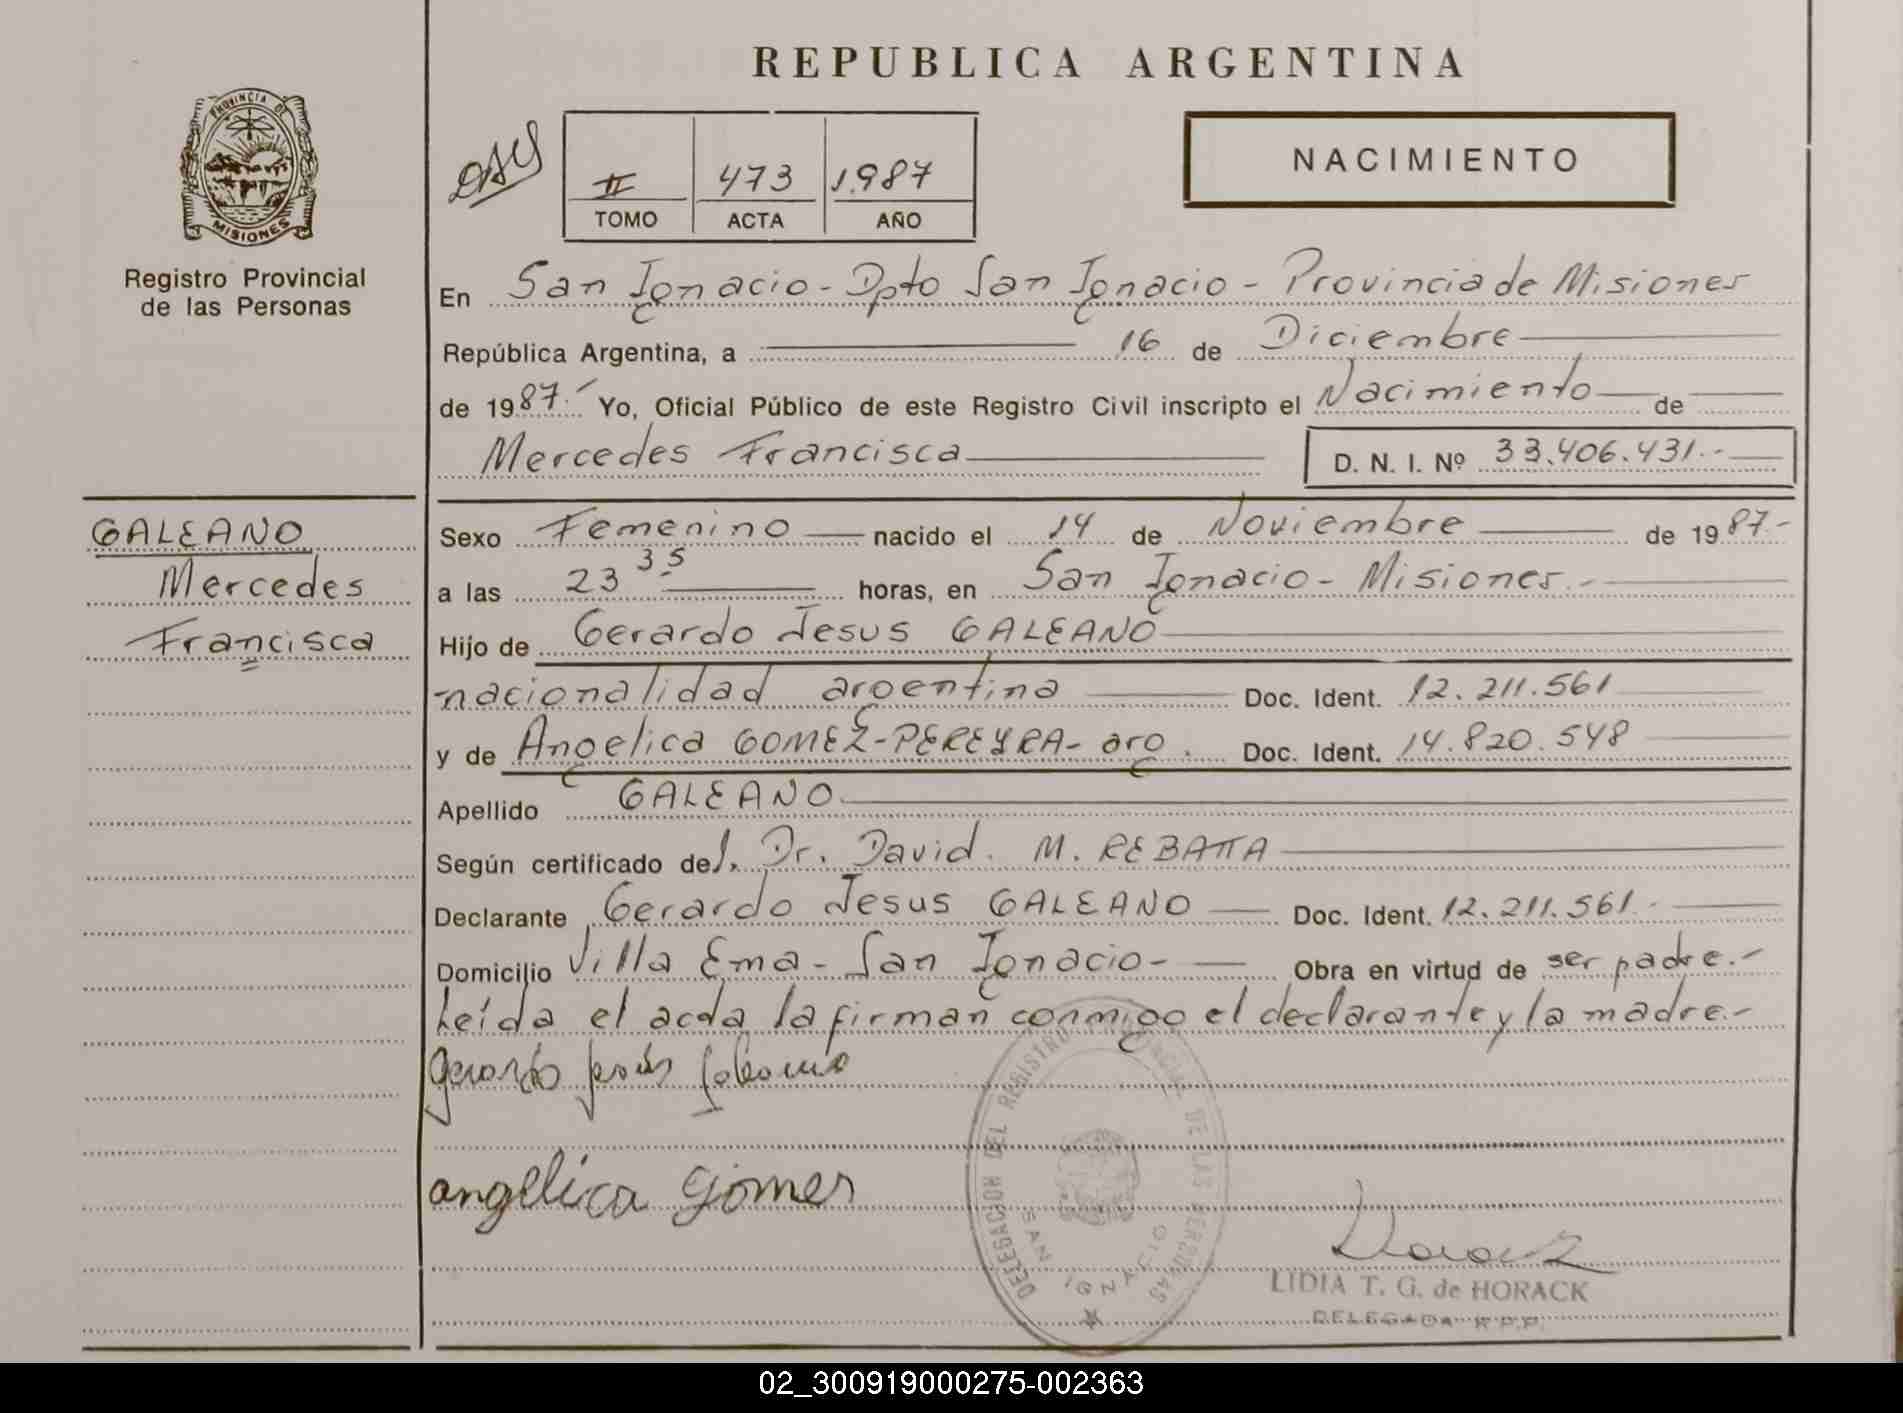 REPUBLICA ARGENTINA
PROVINCIA DE
MISIONES
Registro Provincial
de las Personas
II 473 1987
TOMO ACTA AÑO
NACIMIENTO
En San Ignacio - Dpto San Ignacio - Provincia de Misiones
República Argentina, a 16 de Diciembre
de 1987.- Yo, Oficial Público de este Registro Civil inscripto el Nacimiento de
Mercedes Francisca
D. N. I. Nº 33.406.431.-
GALEANO
Mercedes
Francisca
Sexo Femenino nacido el 14 de Noviembre de 1987.-
a las 23 35 horas, en San Ignacio - Misiones.-
Hijo de Gerardo Jesus GALEANO
nacionalidad argentina Doc. Ident. 12.211.561
y de Angelica GOMEZ-PEREYRA- arg. Doc. Ident. 14.820.548
Apellido GALEANO
Según certificado del. Dr. David. M. REBATTA
Declarante Gerardo Jesus GALEANO Doc. Ident. 12.211.561.-
Domicilio Villa Ema - San Ignacio - Obra en virtud de ser padre.-
Leída el acta la firman conmigo el declarante y la madre.-
gerardo jesús galeano
angelica gomes
DELEGACION DEL REGISTRO PROVINCIAL DE LAS PERSONAS
SAN IGNACIO
LIDIA T. G. de HORACK
DELEGADA R.P.P.
02_300919000275-002363